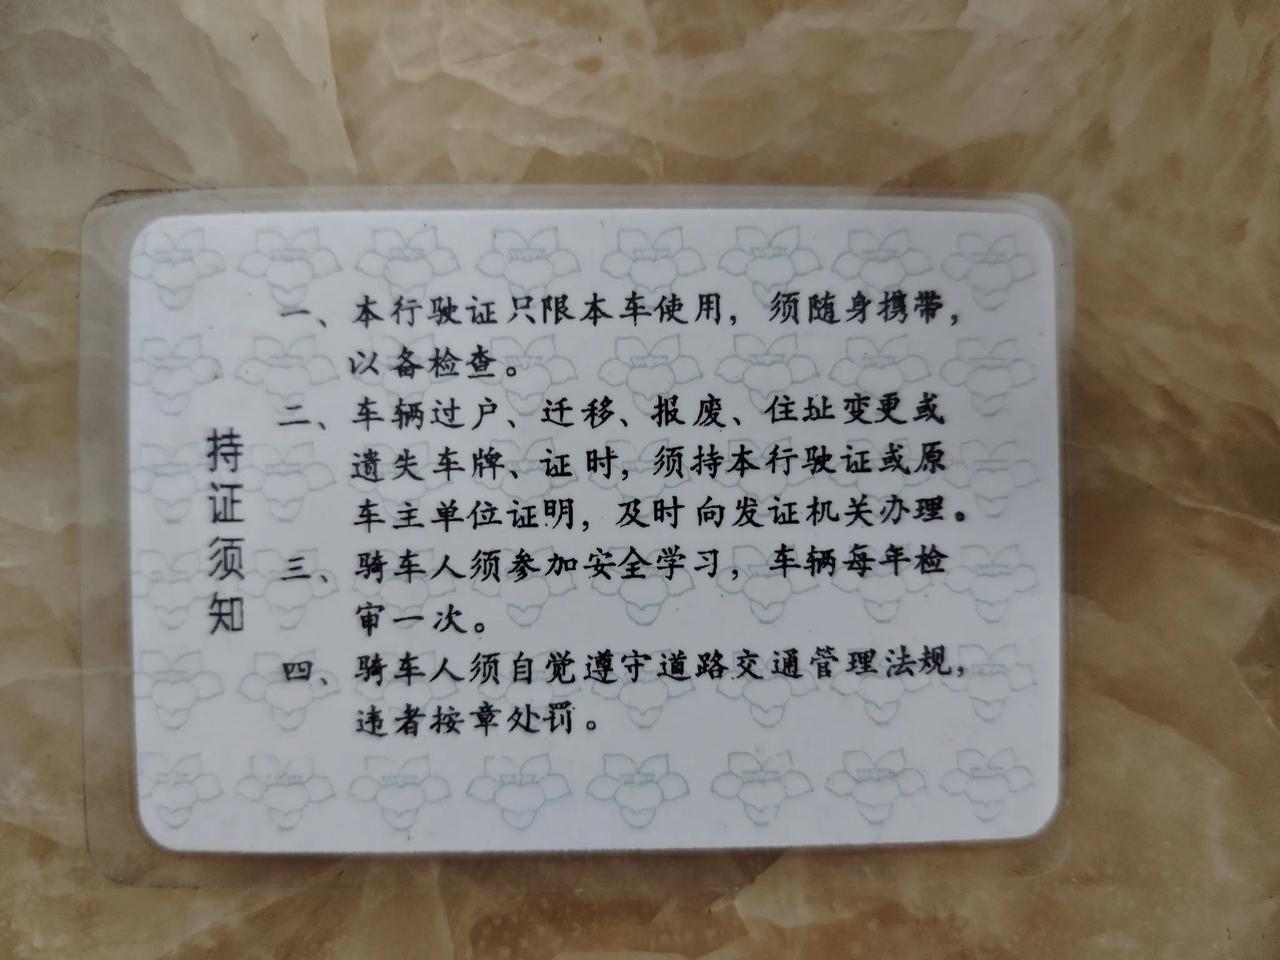 持证须知
一、本行驶证只限本车使用，须随身携带，
以备检查。
二、车辆过户、迁移、报废、住址变更或
遗失车牌、证时，须持本行驶证或原
车主单位证明，及时向发证机关办理。
三、骑车人须参加安全学习，车辆每年检
审一次。
四、骑车人须自觉遵守道路交通管理法规，
违者按章处罚。